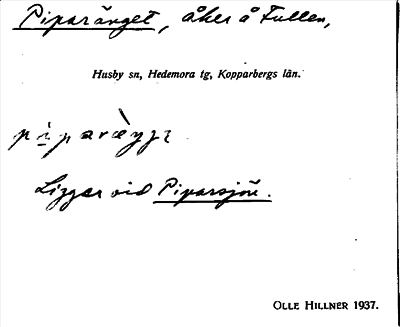 Piparänget, åker å Fullen,
Husby sn, Hedemora tg, Kopparbergs län.
Ligger vid Piparsjön.
OLLE HILLNER 1937.